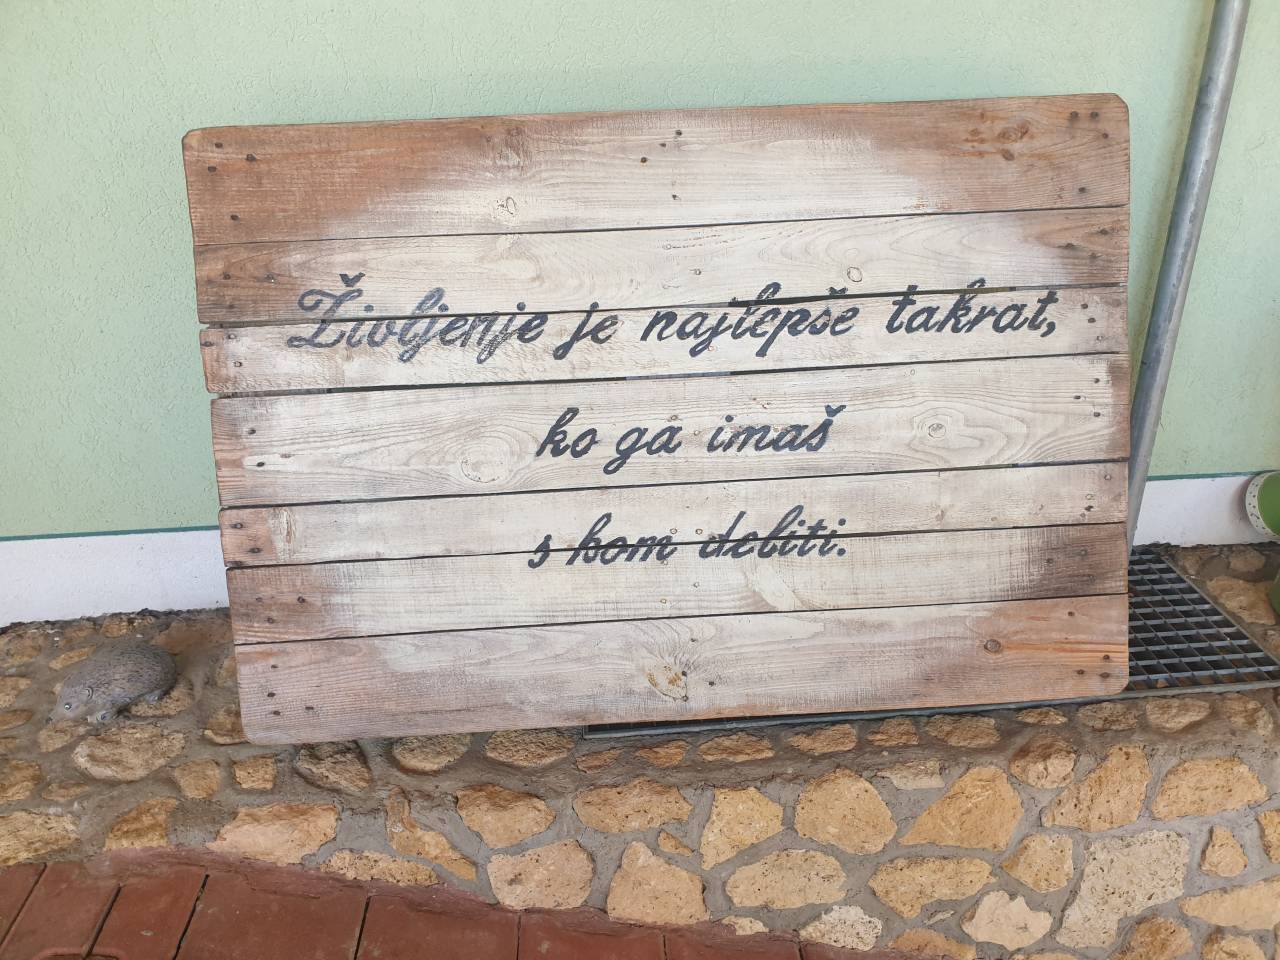 Življenje je najlepše takrat,
ko ga imaš
s kom deliti.